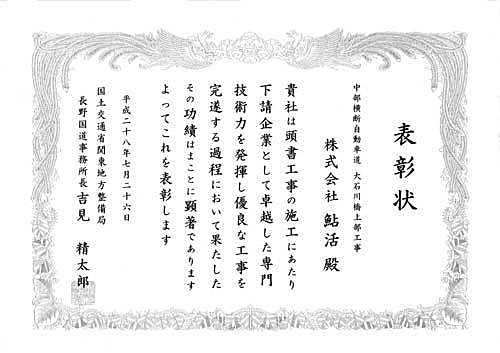 表彰状
中部横断自動車道 大石川橋上部工事
株式会社 鮎活 殿
貴社は頭書工事の施工にあたり
下請企業として卓越した専門
技術力を発揮し優良な工事を
完遂する過程において果たした
その功績はまことに顕著であります
よってこれを表彰します
平成二十八年七月二十六日
国土交通省関東地方整備局
長野国道事務所長 吉見 精太郎